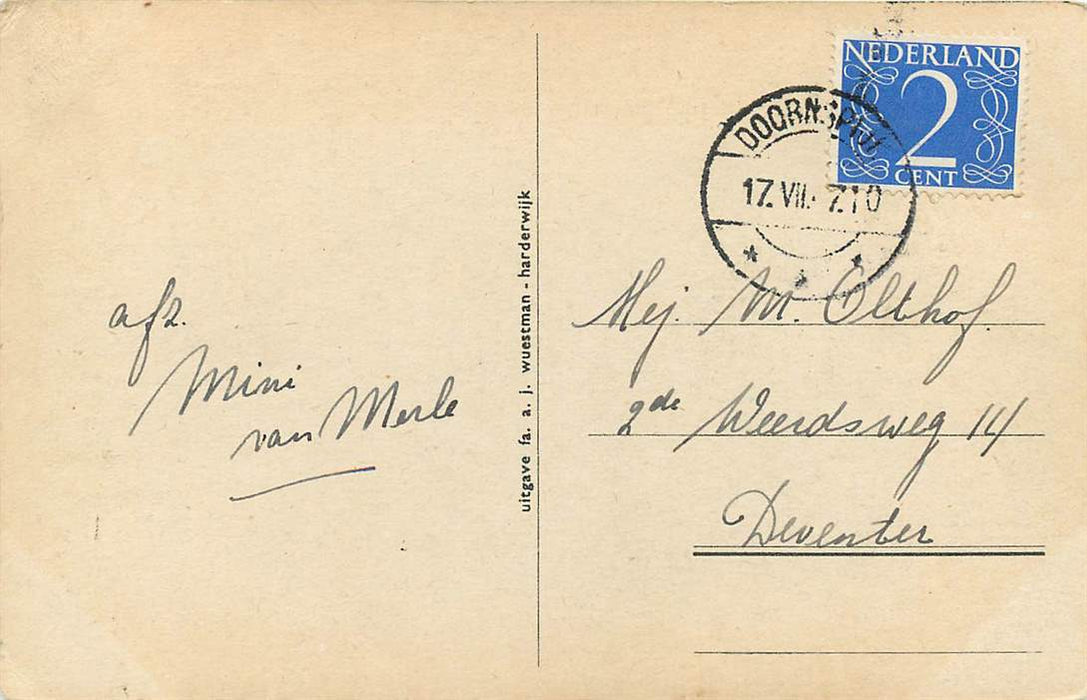 NEDERLAND
2
CENT
17. VII. 7.10
afz.
Mini
van Merle
uitgave fa. a. j. wuestman - harderwijk
Mej. M. Olthof.
2de Weerdsweg 14
Deventer